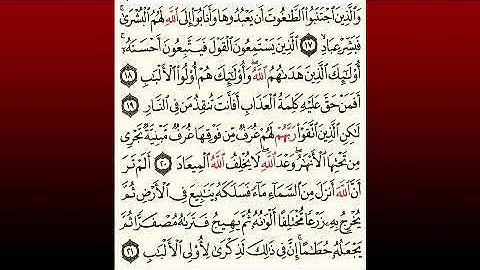 وَالَّذِينَ اجْتَنَبُوا الطَّاغُوتَ أَن يَعْبُدُوهَا وَأَنَابُوا إِلَى اللَّهِ لَهُمُ الْبُشْرَىٰ ۚ
فَبَشِّرْ عِبَادِ ﴿١٧﴾ الَّذِينَ يَسْتَمِعُونَ الْقَوْلَ فَيَتَّبِعُونَ أَحْسَنَهُ ۚ
أُولَٰئِكَ الَّذِينَ هَدَاهُمُ اللَّهُ ۖ وَأُولَٰئِكَ هُمْ أُولُو الْأَلْبَابِ ﴿١٨﴾
أَفَمَنْ حَقَّ عَلَيْهِ كَلِمَةُ الْعَذَابِ أَفَأَنتَ تُنقِذُ مَن فِي النَّارِ ﴿١٩﴾
لَٰكِنِ الَّذِينَ اتَّقَوْا رَبَّهُمْ لَهُمْ غُرَفٌ مِّن فَوْقِهَا غُرَفٌ مَّبْنِيَّةٌ تَجْرِي
مِن تَحْتِهَا الْأَنْهَارُ ۖ وَعْدَ اللَّهِ ۖ لَا يُخْلِفُ اللَّهُ الْمِيعَادَ ﴿٢٠﴾ أَلَمْ تَرَ
أَنَّ اللَّهَ أَنزَلَ مِنَ السَّمَاءِ مَاءً فَسَلَكَهُ يَنَابِيعَ فِي الْأَرْضِ ثُمَّ
يُخْرِجُ بِهِ زَرْعًا مُّخْتَلِفًا أَلْوَانُهُ ثُمَّ يَهِيجُ فَتَرَاهُ مُصْفَرًّا ثُمَّ
يَجْعَلُهُ حُطَامًا ۚ إِنَّ فِي ذَٰلِكَ لَذِكْرَىٰ لِأُولِي الْأَلْبَابِ ﴿٢١﴾